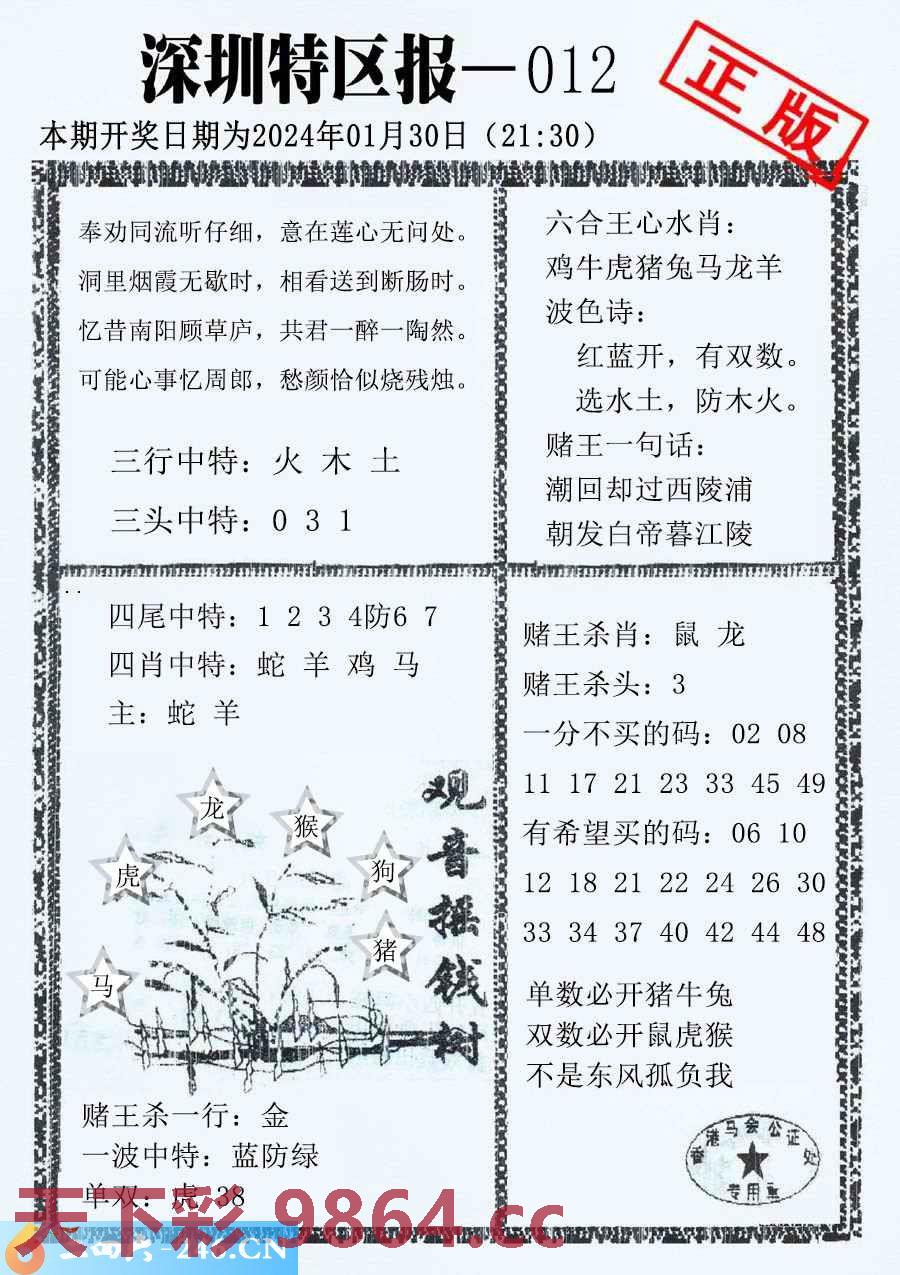 深圳特区报—012
正版
本期开奖日期为2024年01月30日（21:30）
奉劝同流听仔细，意在莲心无问处。
洞里烟霞无歇时，相看送到断肠时。
忆昔南阳顾草庐，共君一醉一陶然。
可能心事忆周郎，愁颜恰似烧残烛。
三行中特：火 木 土
三头中特：0 3 1
六合王心水肖：
鸡牛虎猪兔马龙羊
波色诗：
红蓝开，有双数。
选水土，防木火。
赌王一句话：
潮回却过西陵浦
朝发白帝暮江陵
四尾中特：1 2 3 4防6 7
四肖中特：蛇 羊 鸡 马
主：蛇 羊
龙
猴
虎
狗
猪
马
观音摇钱树
赌王杀一行：金
一波中特：蓝防绿
单双：虎 38
赌王杀肖：鼠 龙
赌王杀头：3
一分不买的码：02 08
11 17 21 23 33 45 49
有希望买的码：06 10
12 18 21 22 24 26 30
33 34 37 40 42 44 48
单数必开猪牛兔
双数必开鼠虎猴
不是东风孤负我
香港马会公证处
专用章
天下彩 9864.cc
-246.CN